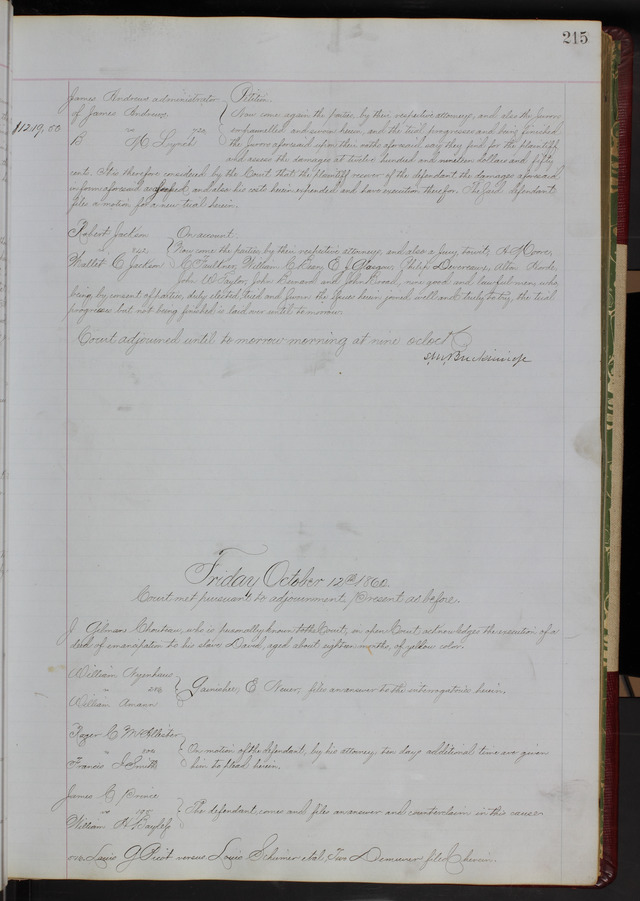 215
James Andrews administrator } Petition.
of James Andrews } Now come again the parties by their respective attorneys, and also the Jurors
$1219,50 vs 720, } empannelled and sworn herein, and the trial progresses and having finished
B M. Lynch } the Jurors aforesaid upon their oaths aforesaid say they find for the plaintiff
and assess the damages at twelve hundred and nineteen dollars and fifty
cents. It is therefore considered by the Court that the plaintiff recover of the defendant the damages aforesaid
in form aforesaid assessed, and also his costs herein expended and have execution therefor. The said defendant
files a motion for a new trial herein.
Robert Jackson } On account.
vs } Now come the parties by their respective attorneys, and also a Jury, to wit, Moore,
C Jackson } C Faulkner, William C Philip Devereaux, Alton
John W Taylor, John and John nine good and lawful men, who
being by consent of parties, duly elected, tried and sworn the issues herein joined well and truly to try, the trial
progresses but not being finished is laid over until tomorrow.
Court adjourned until to morrow morning at nine oclock
Friday October 12th 1860
Court met pursuant to adjournment, Present as before.
J Gilman Chouteau, who is personally known to the Court, in open Court acknowledges the execution of a
deed of emancipation to his slave David, aged about eighteen months, of yellow color.
William Nyenhaus
vs } Garnishee, E files an answer to the interrogatories herein.
William Amann
Roger C
vs } On motion of the defendant, by his attorney, ten days additional time are given
Francis Smith } him to plead herein.
James C
vs } The defendant comes and files an answer and counterclaim in this cause
William
Louis G Picot versus Louis et al, Two Demurrer filed herein.